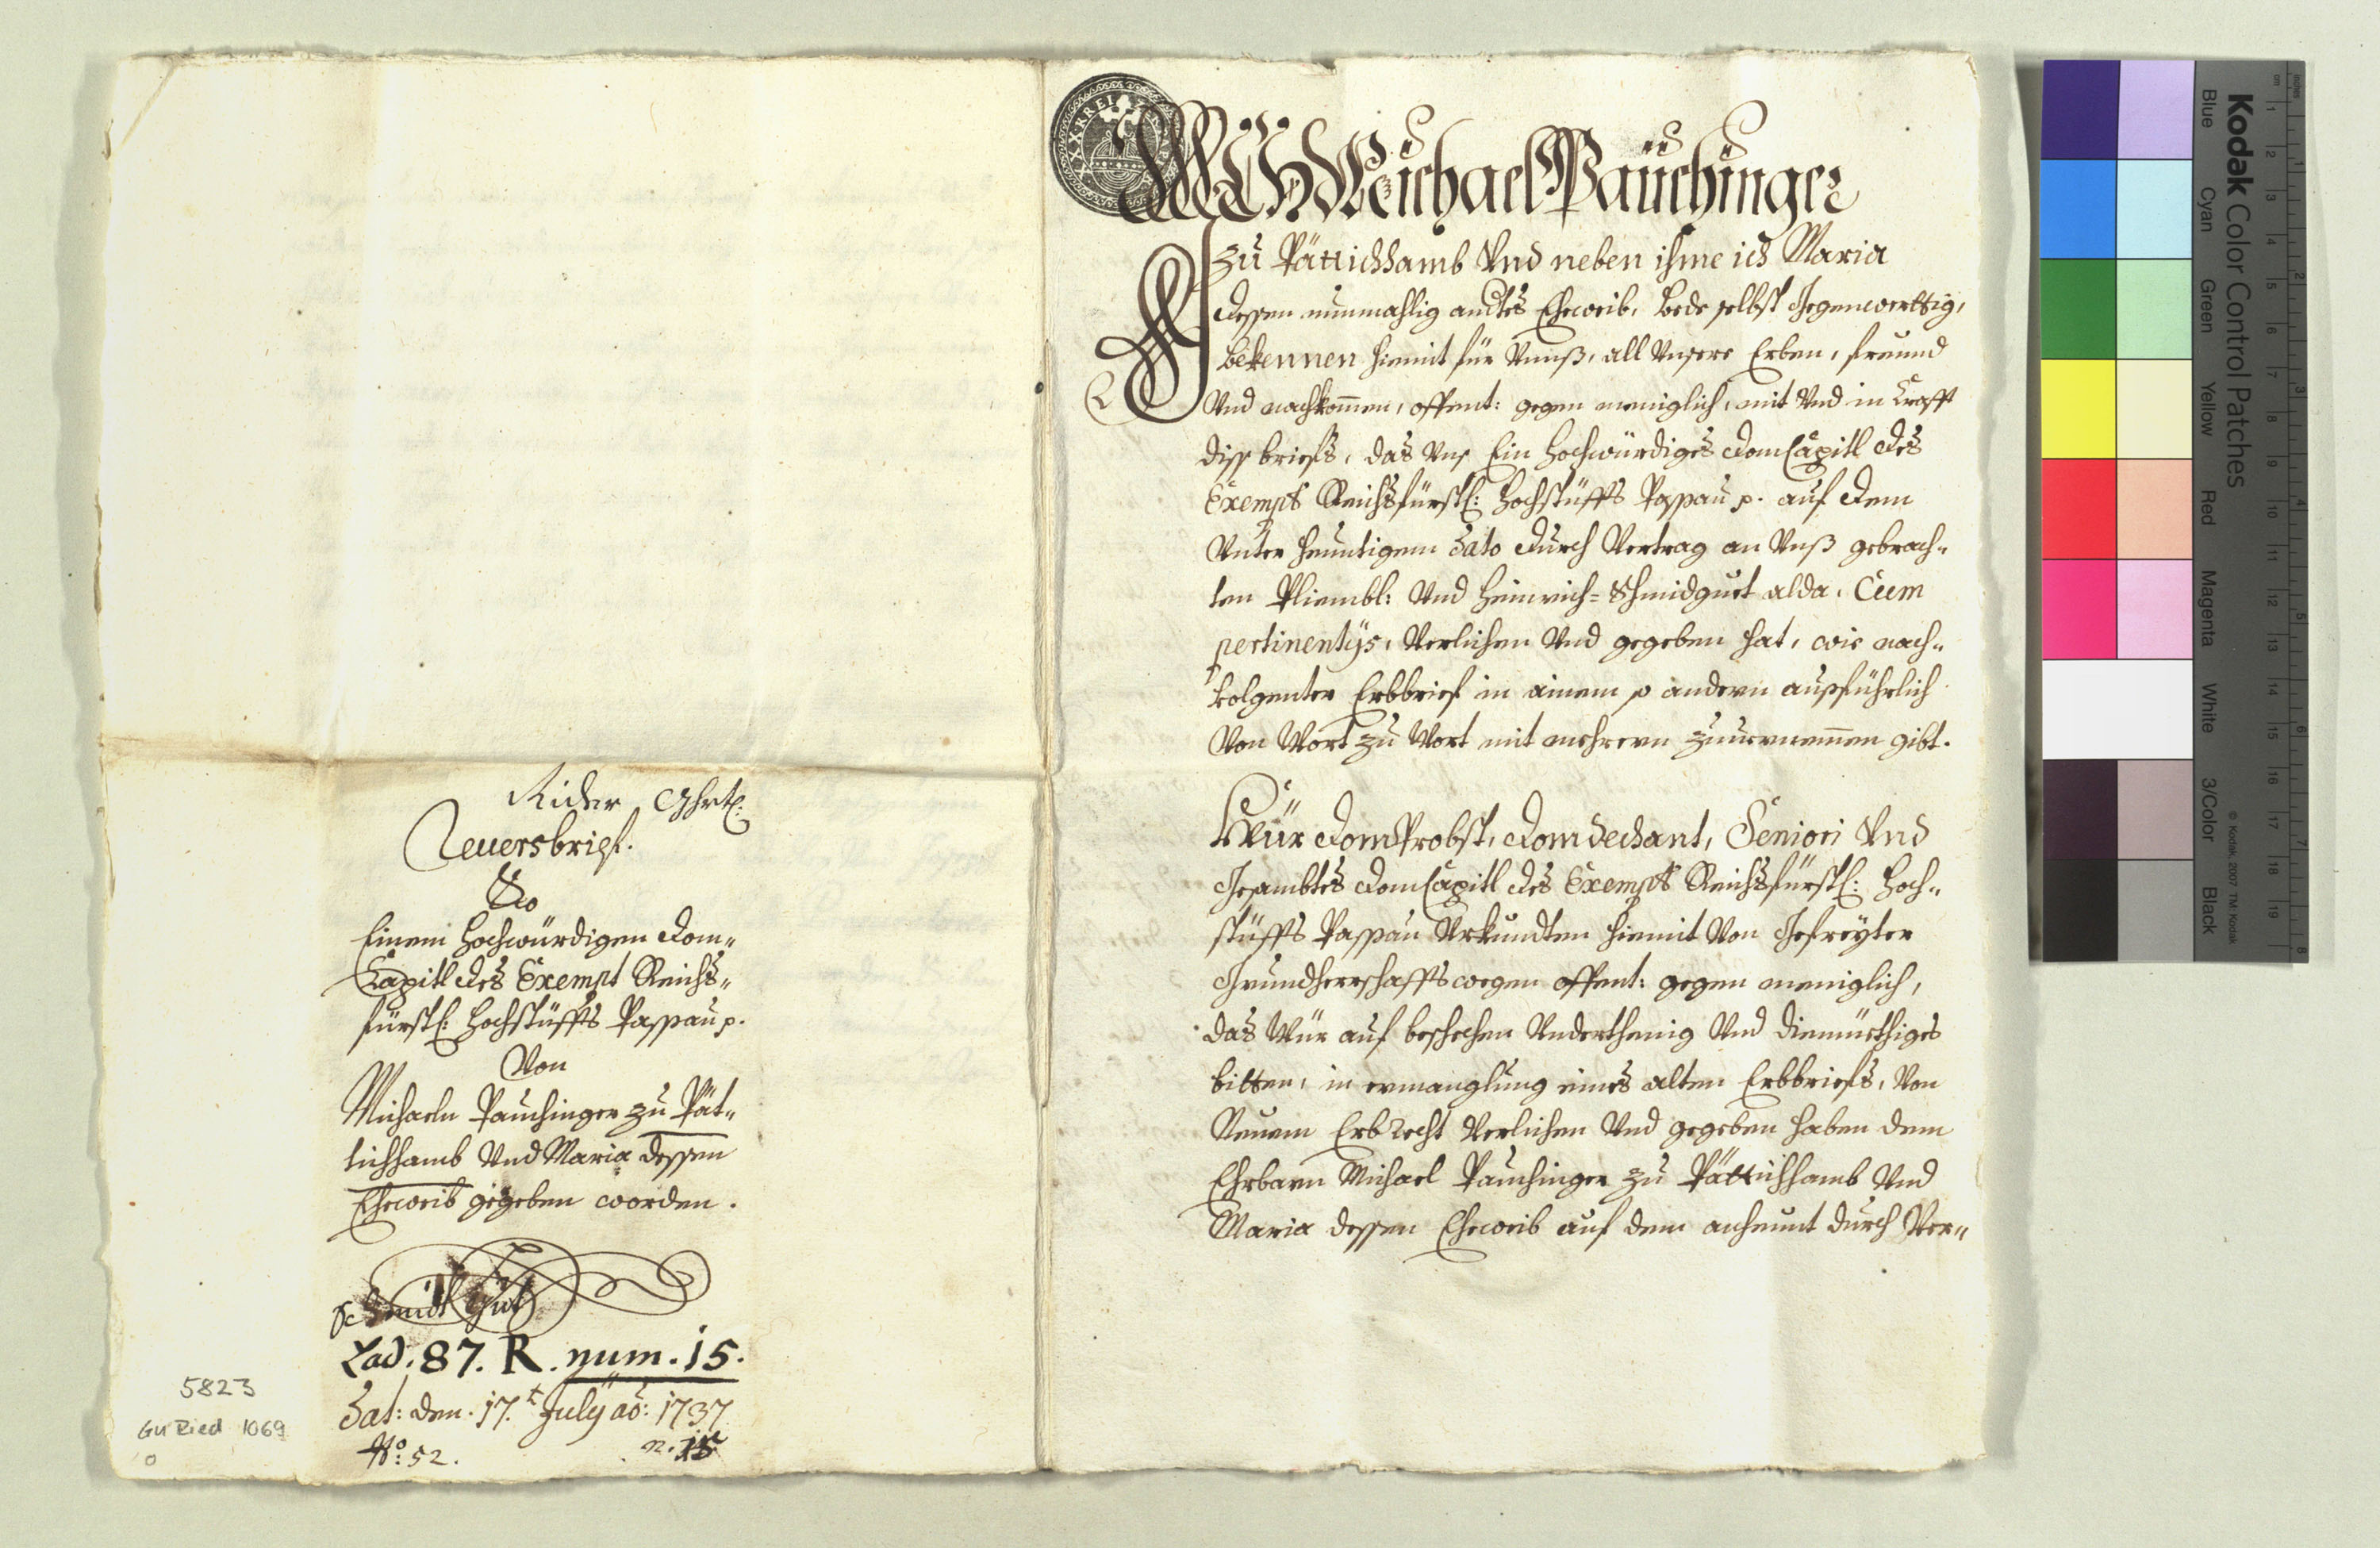 Rider Ghrtl:
Reuersbrief.
So
Einem Hochwürdigen Dom„
Capitl des Exempt Reichs„
fürstl: Hochstüffts Passau p.
Von
Michaeln Pauchinger zu Pät„
tichhamb Und Maria dessen
Eheweib gegeben worden.
Schmidt Gut
Lad: 87. R. num. 15.
Dat: den 17.t July aö: 1737
No: 52. n. 15
5823
GU Ried 1069
0
XX KREI
ICH Michael Päuchinger
zu Pättichhamb Und neben ihme ich Maria
dessen nunmahlig andtes Eheweib, bede selbst Gegenwerttig,
bekennen hiemit für Unnß, all Unsere Erben, freund
Und nachkommen, offent: gegen meniglich, mit Und in Crafft
diss briefs, das Uns Ein Hochwürdiges DomCapitl des
Exempt Reichsfürstl: Hochstüffts Passau p. auf dem
Unter heuntigem Dato durch Vertrag an Unß gebrach„
ten Pliembl: Und Heinrich= Schmidguet alda, Cum
pertinentÿs, Verlichen Und gegeben hat, wie nach„
folgenter Erbbrief in ainem p andern ausführlich
Von Wort zu Wort mit mehrern zuuernemmen gibt.
Wür DomProbst, Domdechant, Seniori Und
Gesambtes DomCapitl des Exempt Reichsfürstl: Hoch„
stüffts Passau Urkundten hiemit Von Gefreÿter
Grundherrschaffts wegen offent: gegen meniglich,
das Wür auf beschechen Underthenig Und diemüethiges
bitten, in ermanglung eines alten Erbbriefs, Von
Neuem Erbrecht Verlichen Und gegeben haben dem
Ehrbarn Michael Päuchinger zu Pättichhamb Und
Maria dessen Eheweib auf dem anheunt durch Ver„
Kodak Color Control Patches
Blue Cyan Green Yellow Red Magenta White 3/Color Black
© Kodak, 2007 TM: Kodak
cm 1 2 3 4 5 6 7 8 9 10 11 12 13 14 15 16 17 18 19
inches 1 2 3 4 5 6 7 8